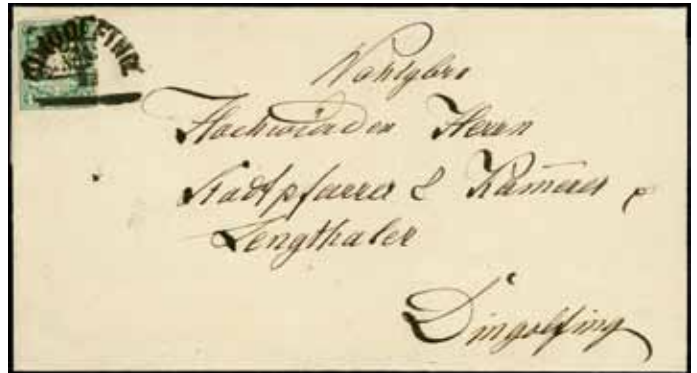 DINGOLFING
Hochwürden Herrn
Stadtpfarrer & Kämerer
Lengthaler
Dingolfing